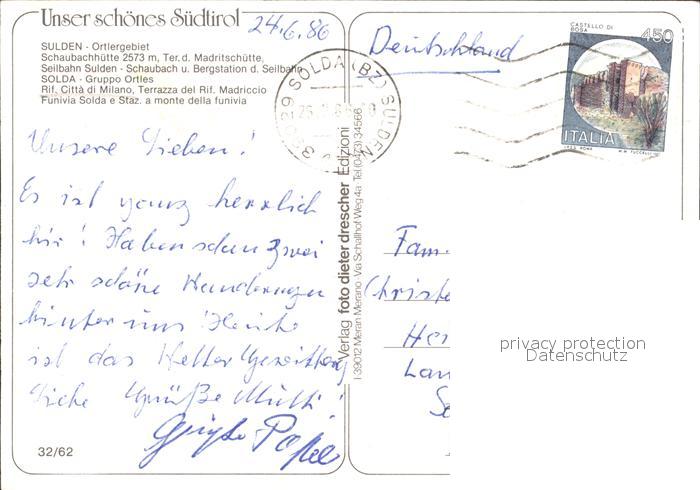 Unser schönes Südtirol
24.6.86
SULDEN - Ortlergebiet
Schaubachhütte 2573 m, Ter. d. Madritschütte,
Seilbahn Sulden - Schaubach u. Bergstation d. Seilbahn
SOLDA - Gruppo Ortles
Rif. Città di Milano, Terrazza del Rif. Madriccio
Funivia Solda e Staz. a monte della funivia
Unsere Lieben!
Es ist ganz herrlich
hier! Haben schon zwei
sehr schöne Wanderungen
hinter uns! Heute
ist das Wetter
Liebe Grüße Mutti!
Papa
32/62
Verlag foto dieter drescher Edizioni
I-39012 Meran Merano · Via Schallhof Weg 4a · Tel. (0473) 34566
39029 SOLDA (BZ) SULDEN
Deutschland
CASTELLO DI
ROSA
450
ITALIA
Fam.
Christe
Her
Lan
privacy protection
Datenschutz